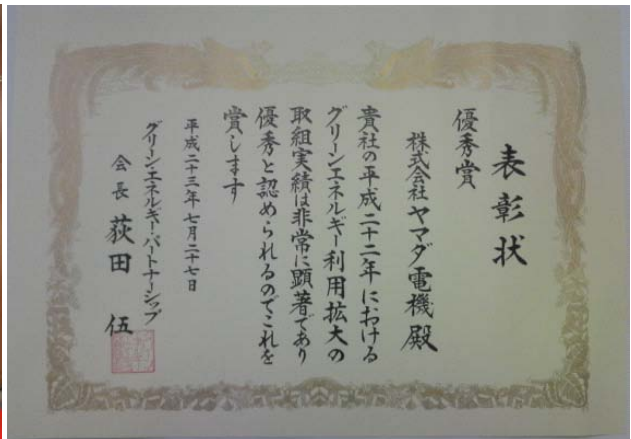 表彰状
優秀賞
株式会社ヤマダ電機殿
貴社の平成二十二年における
グリーンエネルギー利用拡大の
取組実績は非常に顕著であり
優秀と認められるのでこれを
賞します
平成二十三年七月二十七日
グリーンエネルギー・パートナーシップ
会長 荻田 伍